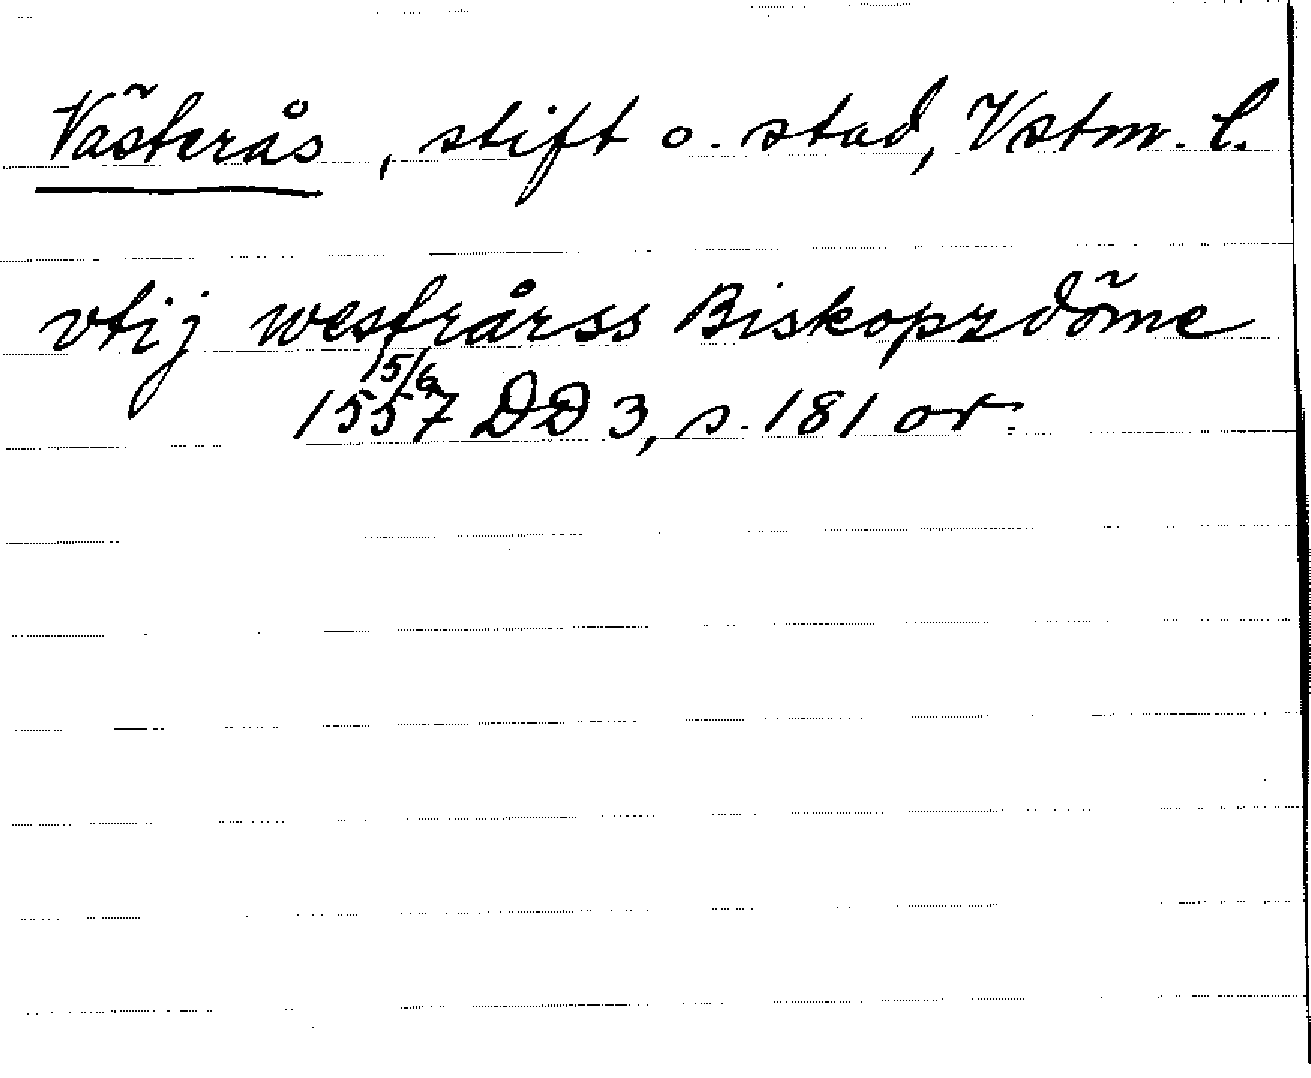 Västerås, stift o. stad, Vstm. l.
vtij westrårss Biskopzdöme
15/6
1557 DD 3, s. 181 or.